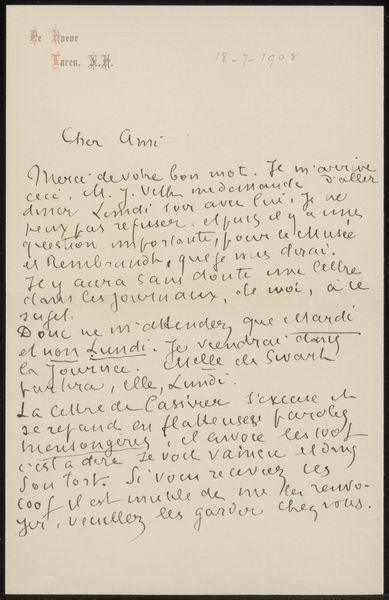 De Hoeve
Laren. N.H.
18-7-1908
Cher Ami
Merci de votre bon mot. Je m'arrive
ceci, M. J. Veth me demande d'aller
diner Lundi soir avec lui, Je ne
peux pas refuser. et puis il y a une
question importante, pour le Musée
et Rembrandt, que je vous dirai.
Il y aura sans doute une lettre
dans les journaux, de moi, à ce
sujet.
Donc ne m'attendez que Mardi
et non Lundi. Je viendrai dans
la journée. Melle de Swart
partira, elle, Lundi.
La lettre de Cassirer s'excuse et
se repand en flatteuses paroles
mensongères, il envoie les 1000f
c'est à dire se voit vaincu et dans
son tort. Si vous recevez les
1000f il est inutile de me les renvo-
yer, veuillez les garder chez vous.